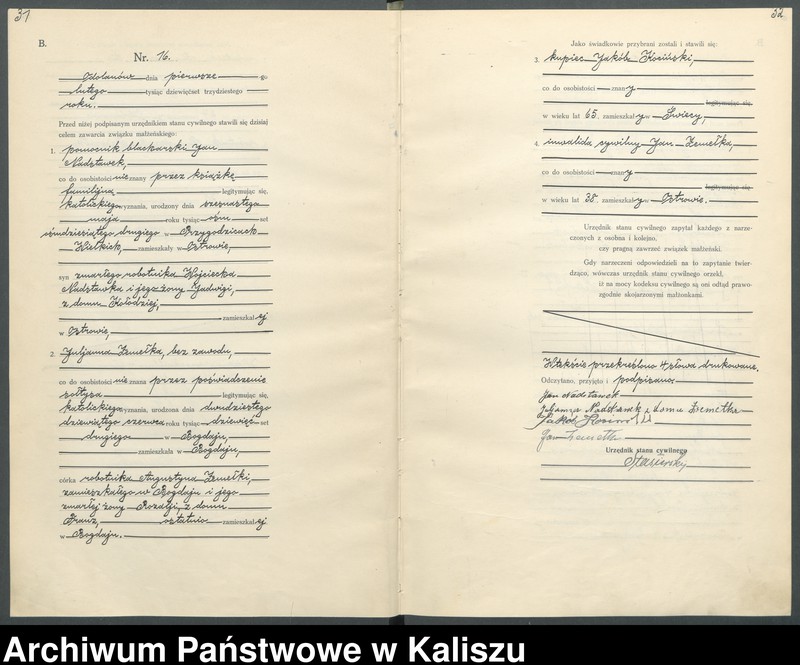 31
B.
Nr. 16.
Odolanów dnia pierwszego
lutego tysiąc dziewięćset trzydziestego
roku.
Przed niżej podpisanym urzędnikiem stanu cywilnego stawili się dzisiaj
celem zawarcia związku małżeńskiego:
1. pomocnik blacharski Jan
Nadstawek,
co do osobistości nie znany przez książkę
familijną legitymując się,
katolickiego wyznania, urodzony dnia szesnastego
maja roku tysiąc ośm set
ośmdziesiątego drugiego w Przygodzicach
Wielkich, zamieszkały w Ostrowie,
syn zmarłego robotnika Wojciecha
Nadstawka i jego żony Jadwigi,
z domu Kołodziej,
zamieszkałej
w Ostrowie,
2. Juljanna Zemełka, bez zawodu,
co do osobistości nie znana przez poświadczenie
sołtysa legitymując się,
katolickiego wyznania, urodzona dnia dwudziestego
dziewiątego czerwca roku tysiąc dziewięć set
drugiego w Bogdaju,
zamieszkała w Bogdaju,
córka robotnika Augustyna Zemełki,
zamieszkałego w Bogdaju i jego
zmarłej żony Rozalji, z domu
Franz, ostatnio zamieszkałej
w Bogdaju.
32
Jako świadkowie przybrani zostali i stawili się:
3. kupiec Jakób Kosiński,
co do osobistości znany
legitymując się,
w wieku lat 65. zamieszkały w Świecy,
4. inwalida cywilny Jan Zemełka,
co do osobistości znany
legitymując się,
w wieku lat 38 zamieszkały w Ostrowie.
Urzędnik stanu cywilnego zapytał każdego z narze-
czonych z osobna i kolejno,
czy pragną zawrzeć związek małżeński.
Gdy narzeczeni odpowiedzieli na to zapytanie twier-
dząco, wówczas urzędnik stanu cywilnego orzekł,
iż na mocy kodeksu cywilnego są oni odtąd prawo-
zgodnie skojarzonymi małżonkami.
W tekście przekreślono 4 słowa drukowane.
Odczytano, przyjęto i podpisano:
Jan Nadstawek
Nadstawek z domu Zemełka
Jakób Kosiński
Jan Zemełka
Urzędnik stanu cywilnego
Archiwum Państwowe w Kaliszu